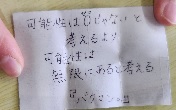 可能性は0じゃないと
考えるより
可能性は
無限にあると考える